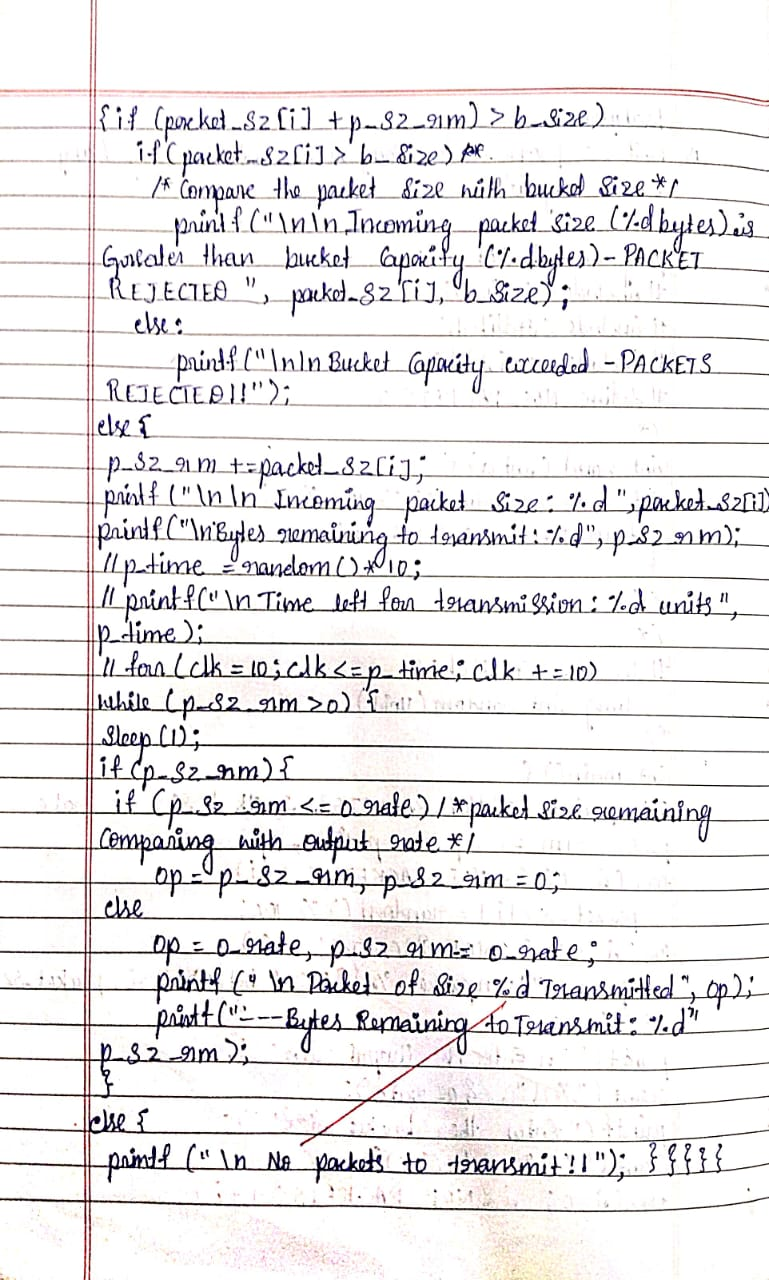 {if (packet_sz[i] + p_sz_rm) > b_size)
if(packet_sz[i] > b_size)
/* Compare the packet size with bucket size */
printf("\n\n Incoming packet size (%d bytes) is
Greater than bucket Capacity (%d bytes) - PACKET
REJECTED ", packet_sz[i], b_size);
else:
printf("\n\n Bucket Capacity exceeded - PACKETS
REJECTED!!");
else {
p_sz_rm += packet_sz[i];
printf ("\n\n Incoming packet size: %d", packet_sz[i])
printf("\n Bytes remaining to transmit: %d", p_sz_rm);
// p_time = random() * 10;
// printf("\n Time left for transmission: %d units",
p_time);
// for (clk = 10; clk <= p_time; clk += 10)
while (p_sz_rm > 0) {
Sleep (1);
if (p_sz_rm) {
if (p_sz_rm <= o_rate) /* packet size remaining
Comparing with output rate */
op = p_sz_rm, p_sz_rm = 0;
else
op = o_rate, p_sz_rm -= o_rate;
printf (" \n Packet of size %d Transmitted", op);
printf ("---Bytes Remaining to Transmit: %d"
p_sz_rm);
}
else {
printf (" \n No packets to transmit!!"); }}}}}